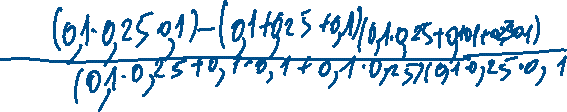 (0,1·0,25·0,1)-(0,1+0,25+0,1)(0,1·0,25+0,1·0,1+0,25·0,1)
(0,1·0,25+0,1·0,1+0,1·0,25)(0,1·0,25·0,1